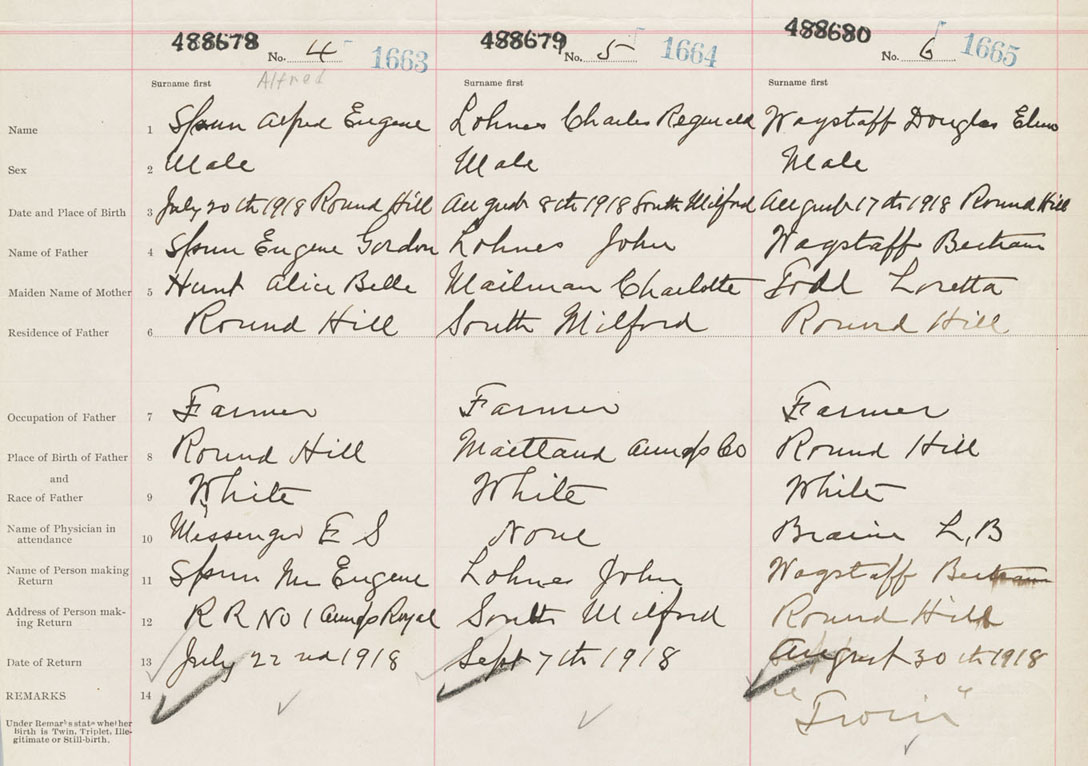 488678 488679 488680
No. 4 1663 No. 5 1664 No. 6 1665
Surname first Alfred Surname first Surname first
Name 1 Spurr Alfred Eugene Lohnes Charles Reginald Wagstaff Douglas
Sex 2 Male Male Male
Date and Place of Birth 3 July 20th 1918 Round Hill August 8th 1918 South Milford August 17th 1918 Round Hill
Name of Father 4 Spurr Eugene Gordon Lohnes John Wagstaff Bertram
Maiden Name of Mother 5 Hunt Alice Belle Mailman Charlotte Todd Loretta
Residence of Father 6 Round Hill South Milford Round Hill
Occupation of Father 7 Farmer Farmer Farmer
Place of Birth of Father 8 Round Hill Maitland Annaps Co Round Hill
and
Race of Father 9 White White White
Name of Physician in
attendance 10 Messenger E S None Braine L, B
Name of Person making
Return 11 Spurr Mr Eugene Lohnes John Wagstaff Bertram
Address of Person mak-
ing Return 12 R R No 1 Annaps Royal South Milford Round Hill
Date of Return 13 July 22nd 1918 Sept 7th 1918 August 30th 1918
REMARKS 14 "Twin"
Under Remarks state whether
Birth is Twin, Triplet, Ille-
gitimate or Still-birth.